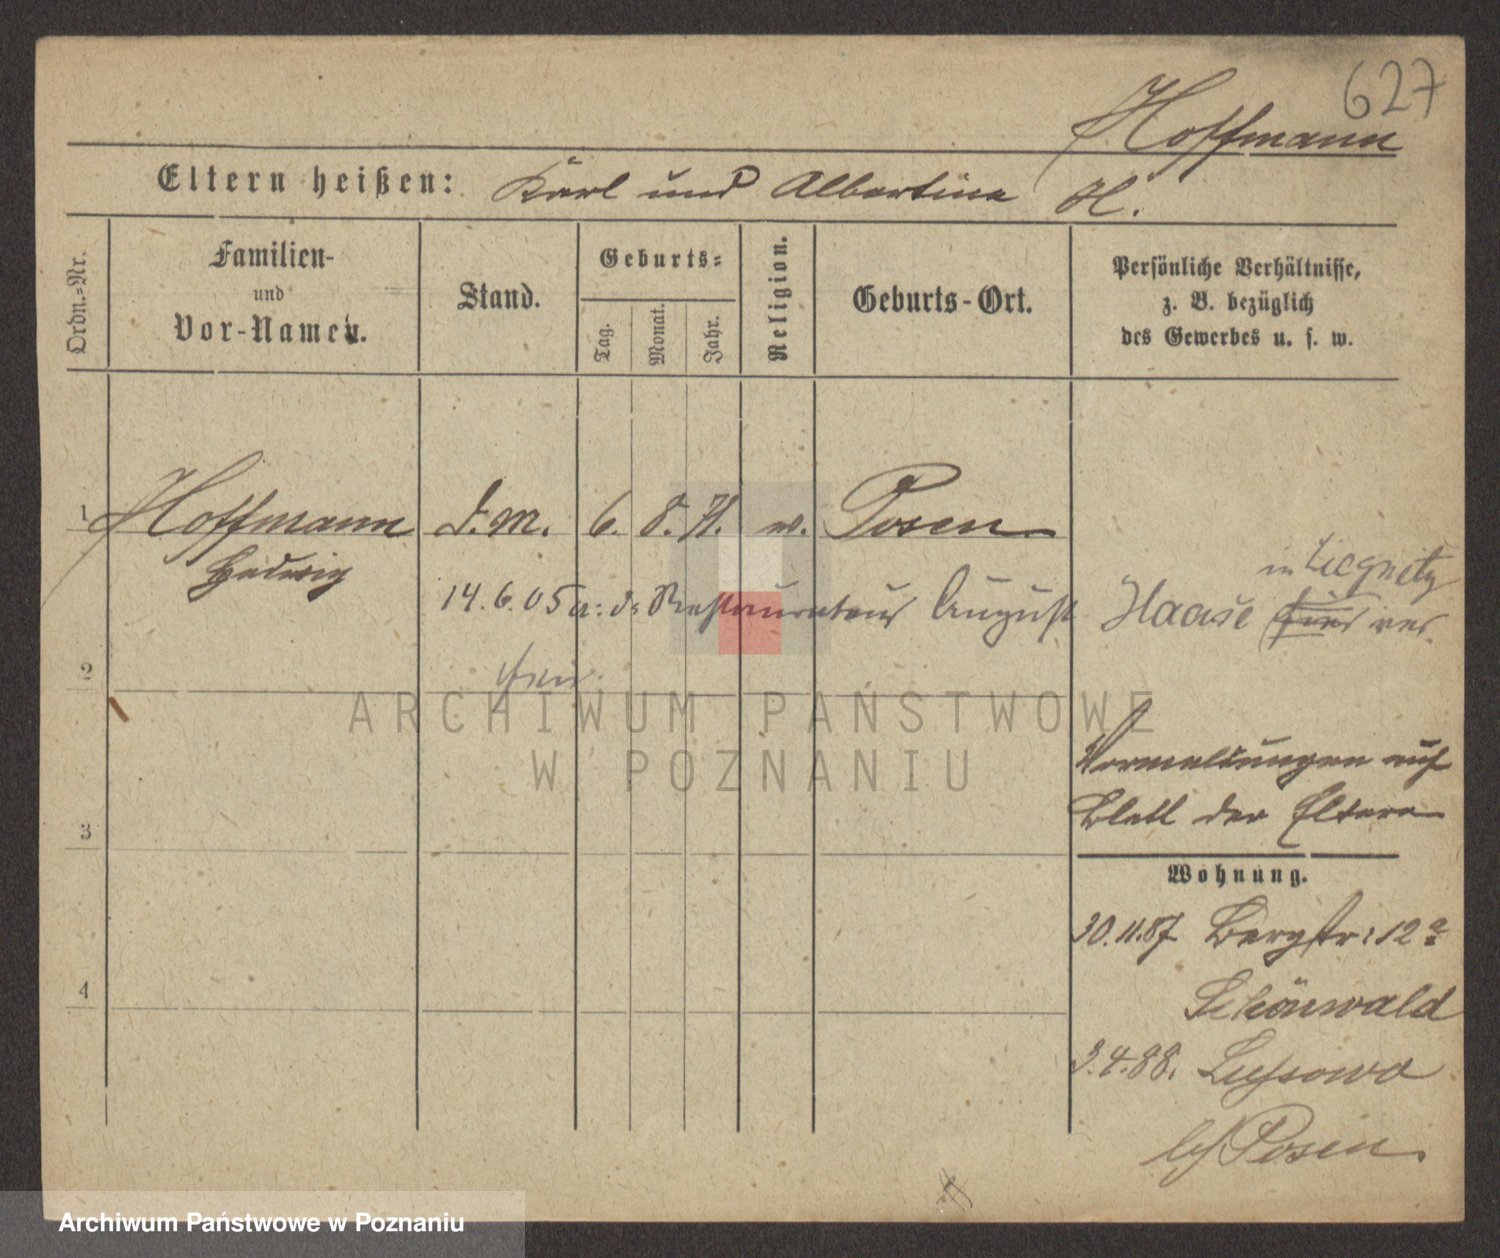 627
Hoffmann
Eltern heißen: Karl und Albertine H.
Ordn.-Nr.
Familien-
und
Vor-Namen.
Stand.
Geburts-
Tag.
Monat.
Jahr.
Religion.
Geburts-Ort.
Persönliche Verhältnisse,
z. B. bezüglich
des Gewerbes u. s. w.
1 Hoffmann D.M. 6. 8. 71. Posen
Hedwig
in Liegnitz
14.6.05 a: d: Restaurateur August Haase hier ver
2
ARCHIWUM PAŃSTWOWE
W POZNANIU
Vermeldungen auf
Blatt der Eltern
3
Wohnung.
30.11.87 Bergstr: 12a
Schönwald
4
3.4.88. Lussowo
b/ Posen.
Archiwum Państwowe w Poznaniu